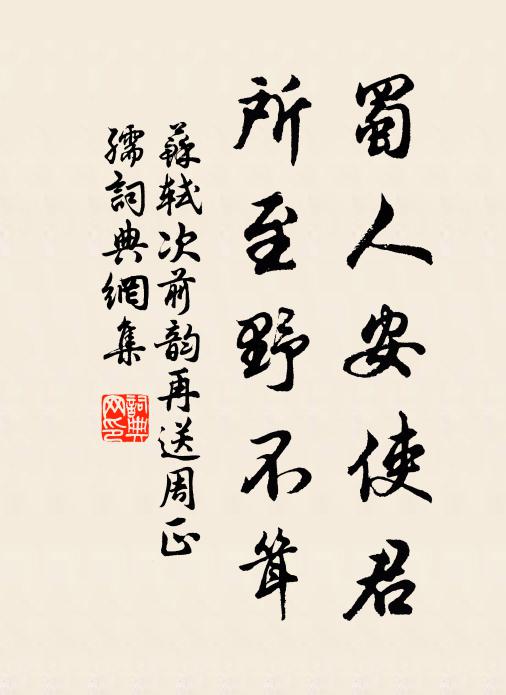 蜀人安使君
所至野不聳
蘇軾次前韵再送周正
孺詞典網集
詞典网印